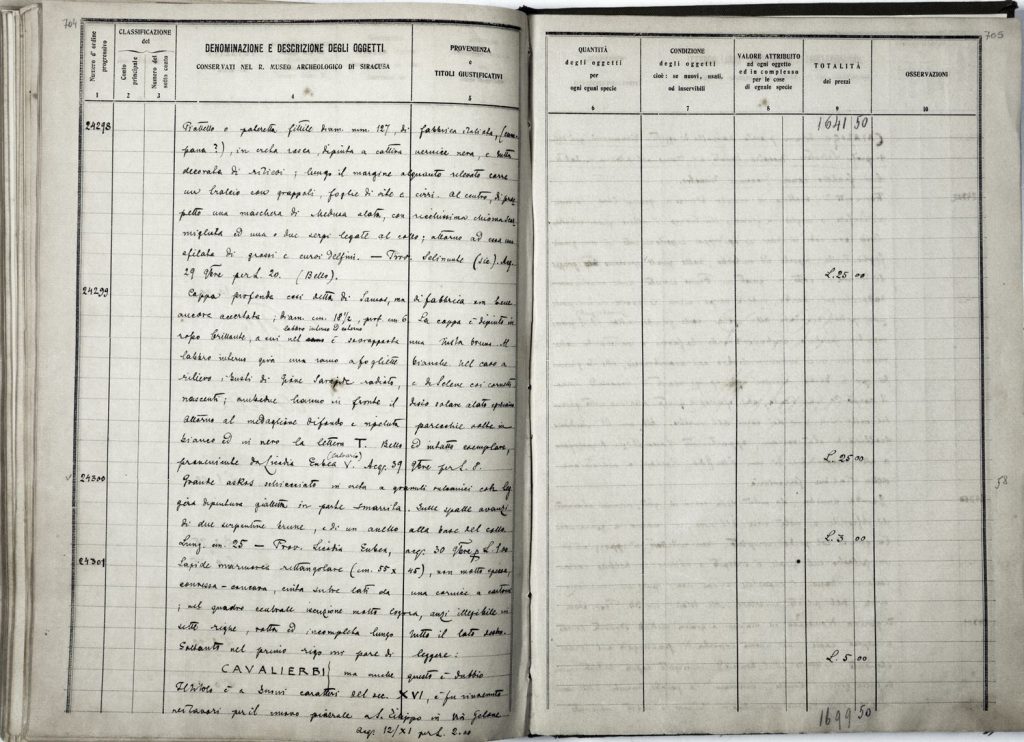 704
Numero d'ordine progressivo
CLASSIFICAZIONE del
Conto principale
Numero del sotto conto
DENOMINAZIONE E DESCRIZIONE DEGLI OGGETTI
CONSERVATI NEL R. MUSEO ARCHEOLOGICO DI SIRACUSA
PROVENIENZA
e
TITOLI GIUSTIFICATIVI
1 2 3 4 5
24298 Piattello o pateretta fittile diam. mm. 127, di fabbrica italiota, (cam
pana?), in creta rosea, dipinta a cattiva vernice nera, e tutta
decorata di rilievi; lungo il margine alquanto rilevato corre
un tralcio con grappoli, foglie di vite e cirri. Al centro, di pro
petto una maschera di Medusa alata, con ricchissima chioma scar
migliata ed una o due serpi legate al collo; attorno ad essa una
sfilata di grossi e curvi delfini. — Prov. Selinunte (sic). Acq.
29 9bre per L. 20. (Bello).
24299 Coppa profonda così detta di Samos, ma di fabbrica non bene
ancora accertata; diam. cm. 18½, prof. cm 6. La coppa è dipinta in
labbro interno ed esterno
rosso brillante, a cui nel è sovrapposta una tinta bruna. Al
labbro interno gira una ramo a fogliette bianche. Nel cavo a
rilievo i busti di radiato, e di Selene coi cornetti
nascenti; ambedue hanno in fronte il disco solare alato
Attorno al medaglione di fondo e ripetuta parecchie volte in
bianco ed in nero la lettera T. Bello ed intatto esemplare,
proveniente da Licodia Eubea (Calvario) V. Acq. 39 9bre per L. 8.
24300 Grande askos schiacciato in creta a granuli vulcanici con leg
gera dipintura gialletta in parte smarrita. Sulle spalle avanzi
di due serpentine brune, e di un anello alla base del collo
Lung. cm. 25 — Prov. Licodia Eubea, acq. 30 9bre p L. 1.00
24301 Lapide marmorea rettangolare (cm. 55 x 45), non molto spessa,
convessa-concava, cinta su tre lati da una cornice a
; nel quadro centrale iscrizione molto logora, anzi illegibile in
sette righe, rotta ed incompleta lungo tutto il lato destro.
Soltanto nel primo rigo mi pare di leggere:
CAVALIERBI ma anche questo è dubbio
Il titolo è a buoni caratteri del sec. XVI, e fu rinvenuto
nei lavori per il nuovo piazzale a S. Filippo in Via Gelone
acq. 12/XI per L. 2.00
705
QUANTITÀ
degli oggetti
per
ogni egual specie
CONDIZIONE
degli oggetti
cioè: se nuovi, usati,
od inservibili
VALORE ATTRIBUITO
ad ogni oggetto
ed in complesso
per le cose
di eguale specie
TOTALITÀ
dei prezzi
OSSERVAZIONI
6 7 8 9 10
1641 50
L. 25 00
L. 25 00
58
L. 3 00
L. 5 00
1699 50